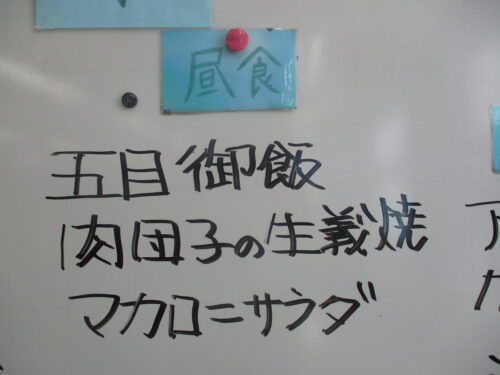 昼食
五目御飯
肉団子の生義焼
マカロニサラダ